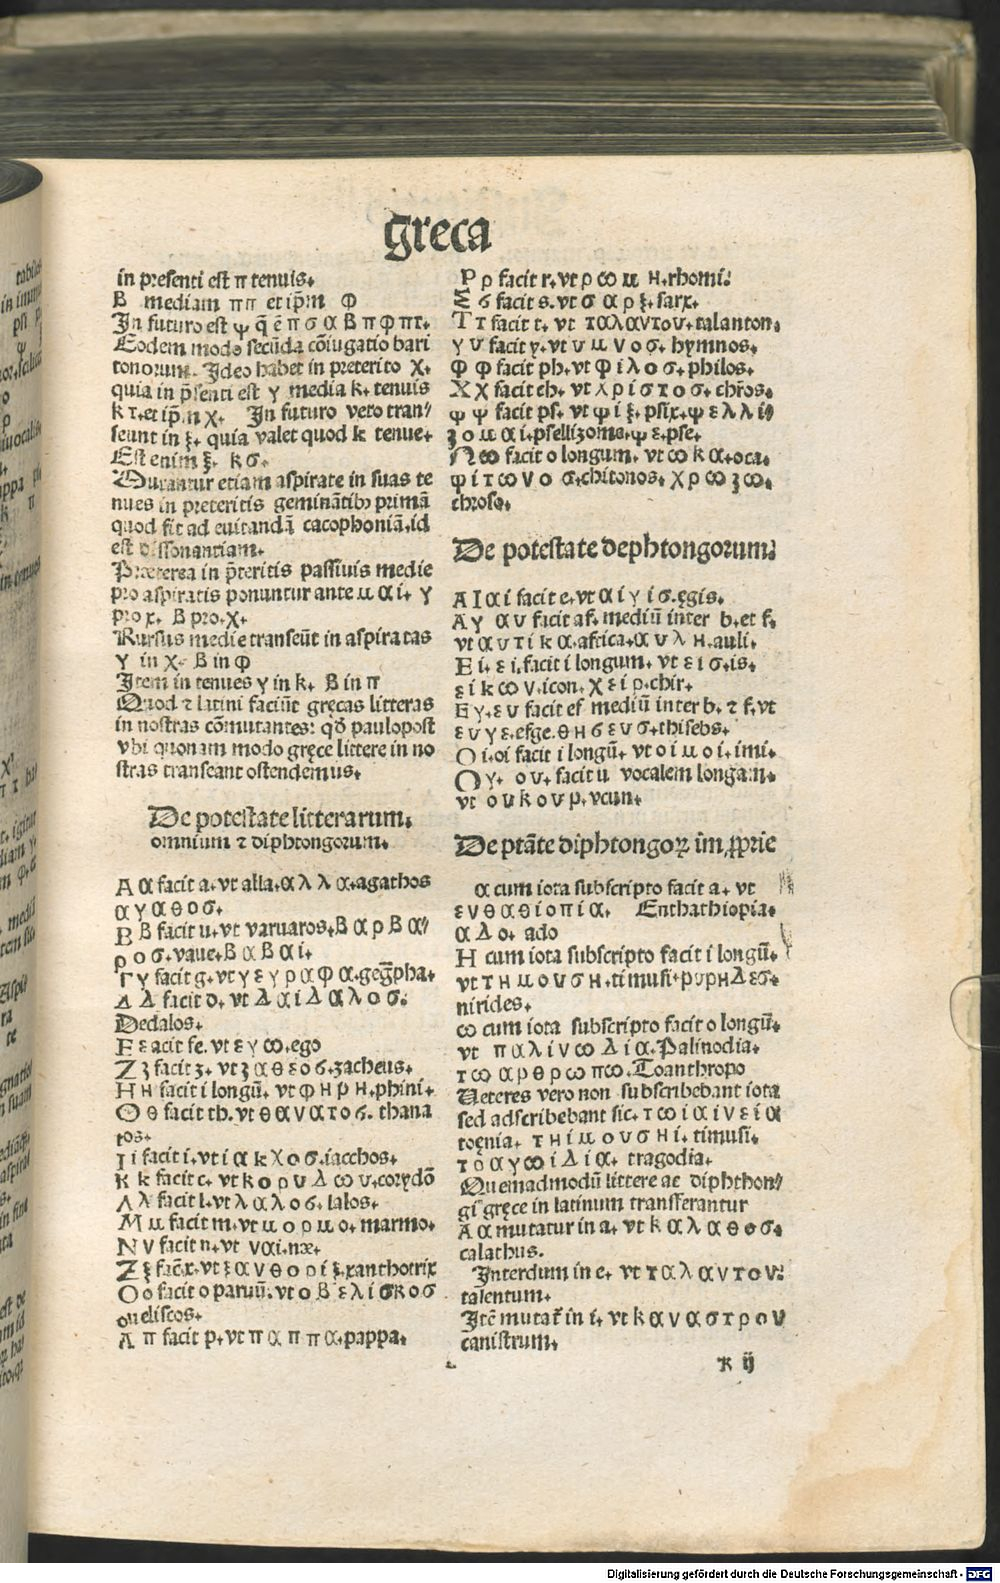 greca
in presenti est π tenuis.
B mediam π π et ip̄m φ
In futuro est ψ q̄ ē π σ α B π φ π τ.
Eodem modo secūda cōiugatio bari
tonorum. Ideo habet in preterito χ.
quia in p̄senti est γ media k. tenuis
k τ. et ip̄m χ. In futuro vero tran/
seunt in ξ. quia valet quod k tenue.
Est enim ξ. k σ.
Mutantur etiam aspirate in suas te
nues in preteritis geminātib9 primā
quod fit ad euitandā cacophoniā. id
est dissonantiam.
Præterea in p̄teritis passiuis medie
pro aspiratis ponuntur ante μ α ι. γ
pro χ. B pro. χ.
Rursus medie transeūt in aspiratas
γ in χ. B in φ
Item in tenues γ in k. B in π
Quod ⁊ latini faciūt gręcas litteras
in nostras cōmutantes: qđ paulopost
vbi quonam modo gręce littere in no
stras transeant ostendemus.
De potestate litterarum.
omnium ⁊ diphtongorum.
A α facit a. vt alla. α λ λ α. agathos
α γ α θ ο σ.
B B facit u. vt varuaros. B α ρ B α/
ρ ο σ. vaue. B α B α ι.
Γ γ facit g. vt γ ε γ ρ α φ α. gegrapha.
Δ Δ facit d. vt Δ α ί Δ α λ ο σ.
Dedalos.
E ε acit fe. vt ε γ ω. ego
Z ʒ facit ʒ. vt ʒ α θ ε ο ς. ʒacheus.
H н facit i longū. vt φ н ρ н. phini.
Θ θ facit th. vt θ α ν α τ ο ς. thana
tos.
I ι facit i. vt ί α k χ ο σ. iacchos.
K k facit c. vt k ο ρ υ Δ ω υ. corydō
Λ λ facit l. vt λ α λ ο ς. lalos.
M μ facit m. vt μ ο ρ μ ο. marmo.
N ν facit n. vt ν α ι. næ.
Z ξ fac̄ x. vt ξ α ν θ ο ρ ί ξ. xanthotrix
O o facit o paruū. vt ο B ε λ ί σ κ ο σ
oueliscos.
Π π facit p. vt π α π π α. pappa.
P ρ facit r. vt ρ ω μ н. rhomi.
Σ ς facit s. vt σ α ρ ξ. sarx.
T τ facit t. vt τ α λ α ν τ ο υ. talanton.
Y υ facit y. vt υ μ ν ο σ. hymnos.
φ φ facit ph. vt φ ί λ ο σ. philos.
X χ facit ch. vt χ ρ ί σ τ ο σ. chr̄os.
ψ ψ facit ps. vt ψ ί ξ. psix. ψ ε λ λ ί/
ʒ ο μ α ι. pselliʒome. ψ ε. pse.
Ω ω facit o longum. vt ω k α. oca.
ψ ί τ ω ν ο σ. chitonos. χ ρ ω ʒ ω.
chroso.
De potestate dephtongorum.
A I α ί facit e. vt α ί γ ί σ. ęgis.
A Y α υ facit af. mediū inter b. et f.
vt α υ τ ί κ α. aftica. α υ λ н. auli.
E ι. ε ι. facit i longum. vt ε ι σ. is.
ε ί κ ω ν. icon. χ ε ί ρ. chir.
E Y. ε υ facit ef mediū inter b. ⁊ f. vt
ε υ γ ε. efge. θ н ς ε υ σ. thisebs.
O ι. οί facit i longū. vt ο ί μ ο ι. imi.
O Y. ο υ. facit u vocalem longam.
vt ο υ k ο υ ρ. vcun.
De ptāte diphtongoꝝ im ꝓprie
α cum iota subscripto facit a. vt
ε ν θ α θ ί ο π ί α. Enthathiopia.
α Δ ο. ado
H cum iota subscripto facit i longū.
vt τ н μ ο υ σ н. ti musi. ρ υ ρ н Δ ε σ.
nirides.
ω cum iota subscripto facit o longū.
vt π α λ ί ν ω Δ ί α. Palinodia.
τ ω α ρ θ ρ ω π ω. Toanthropo
Ueteres vero non subscribebant iota
sed adscribebant sic. τ ω ί α ί ν ε ί α
toęnia. τ н ί μ ο υ σ н ί. timusi.
τ ρ α γ ω ί Δ ί α. tragodia.
Quemadmodū littere ac diphthon/
gi gręce in latinum transferantur
A α mutatur in a. vt k α λ α θ ο σ.
calathus.
Interdum in e. vt τ α λ α ν τ ο υ.
talentum.
Itē mutat̄ in i. vt k α ν α σ τ ρ ο υ
canistrum.
K ij
Digitalisierung gefördert durch die Deutsche Forschungsgemeinschaft - DFG